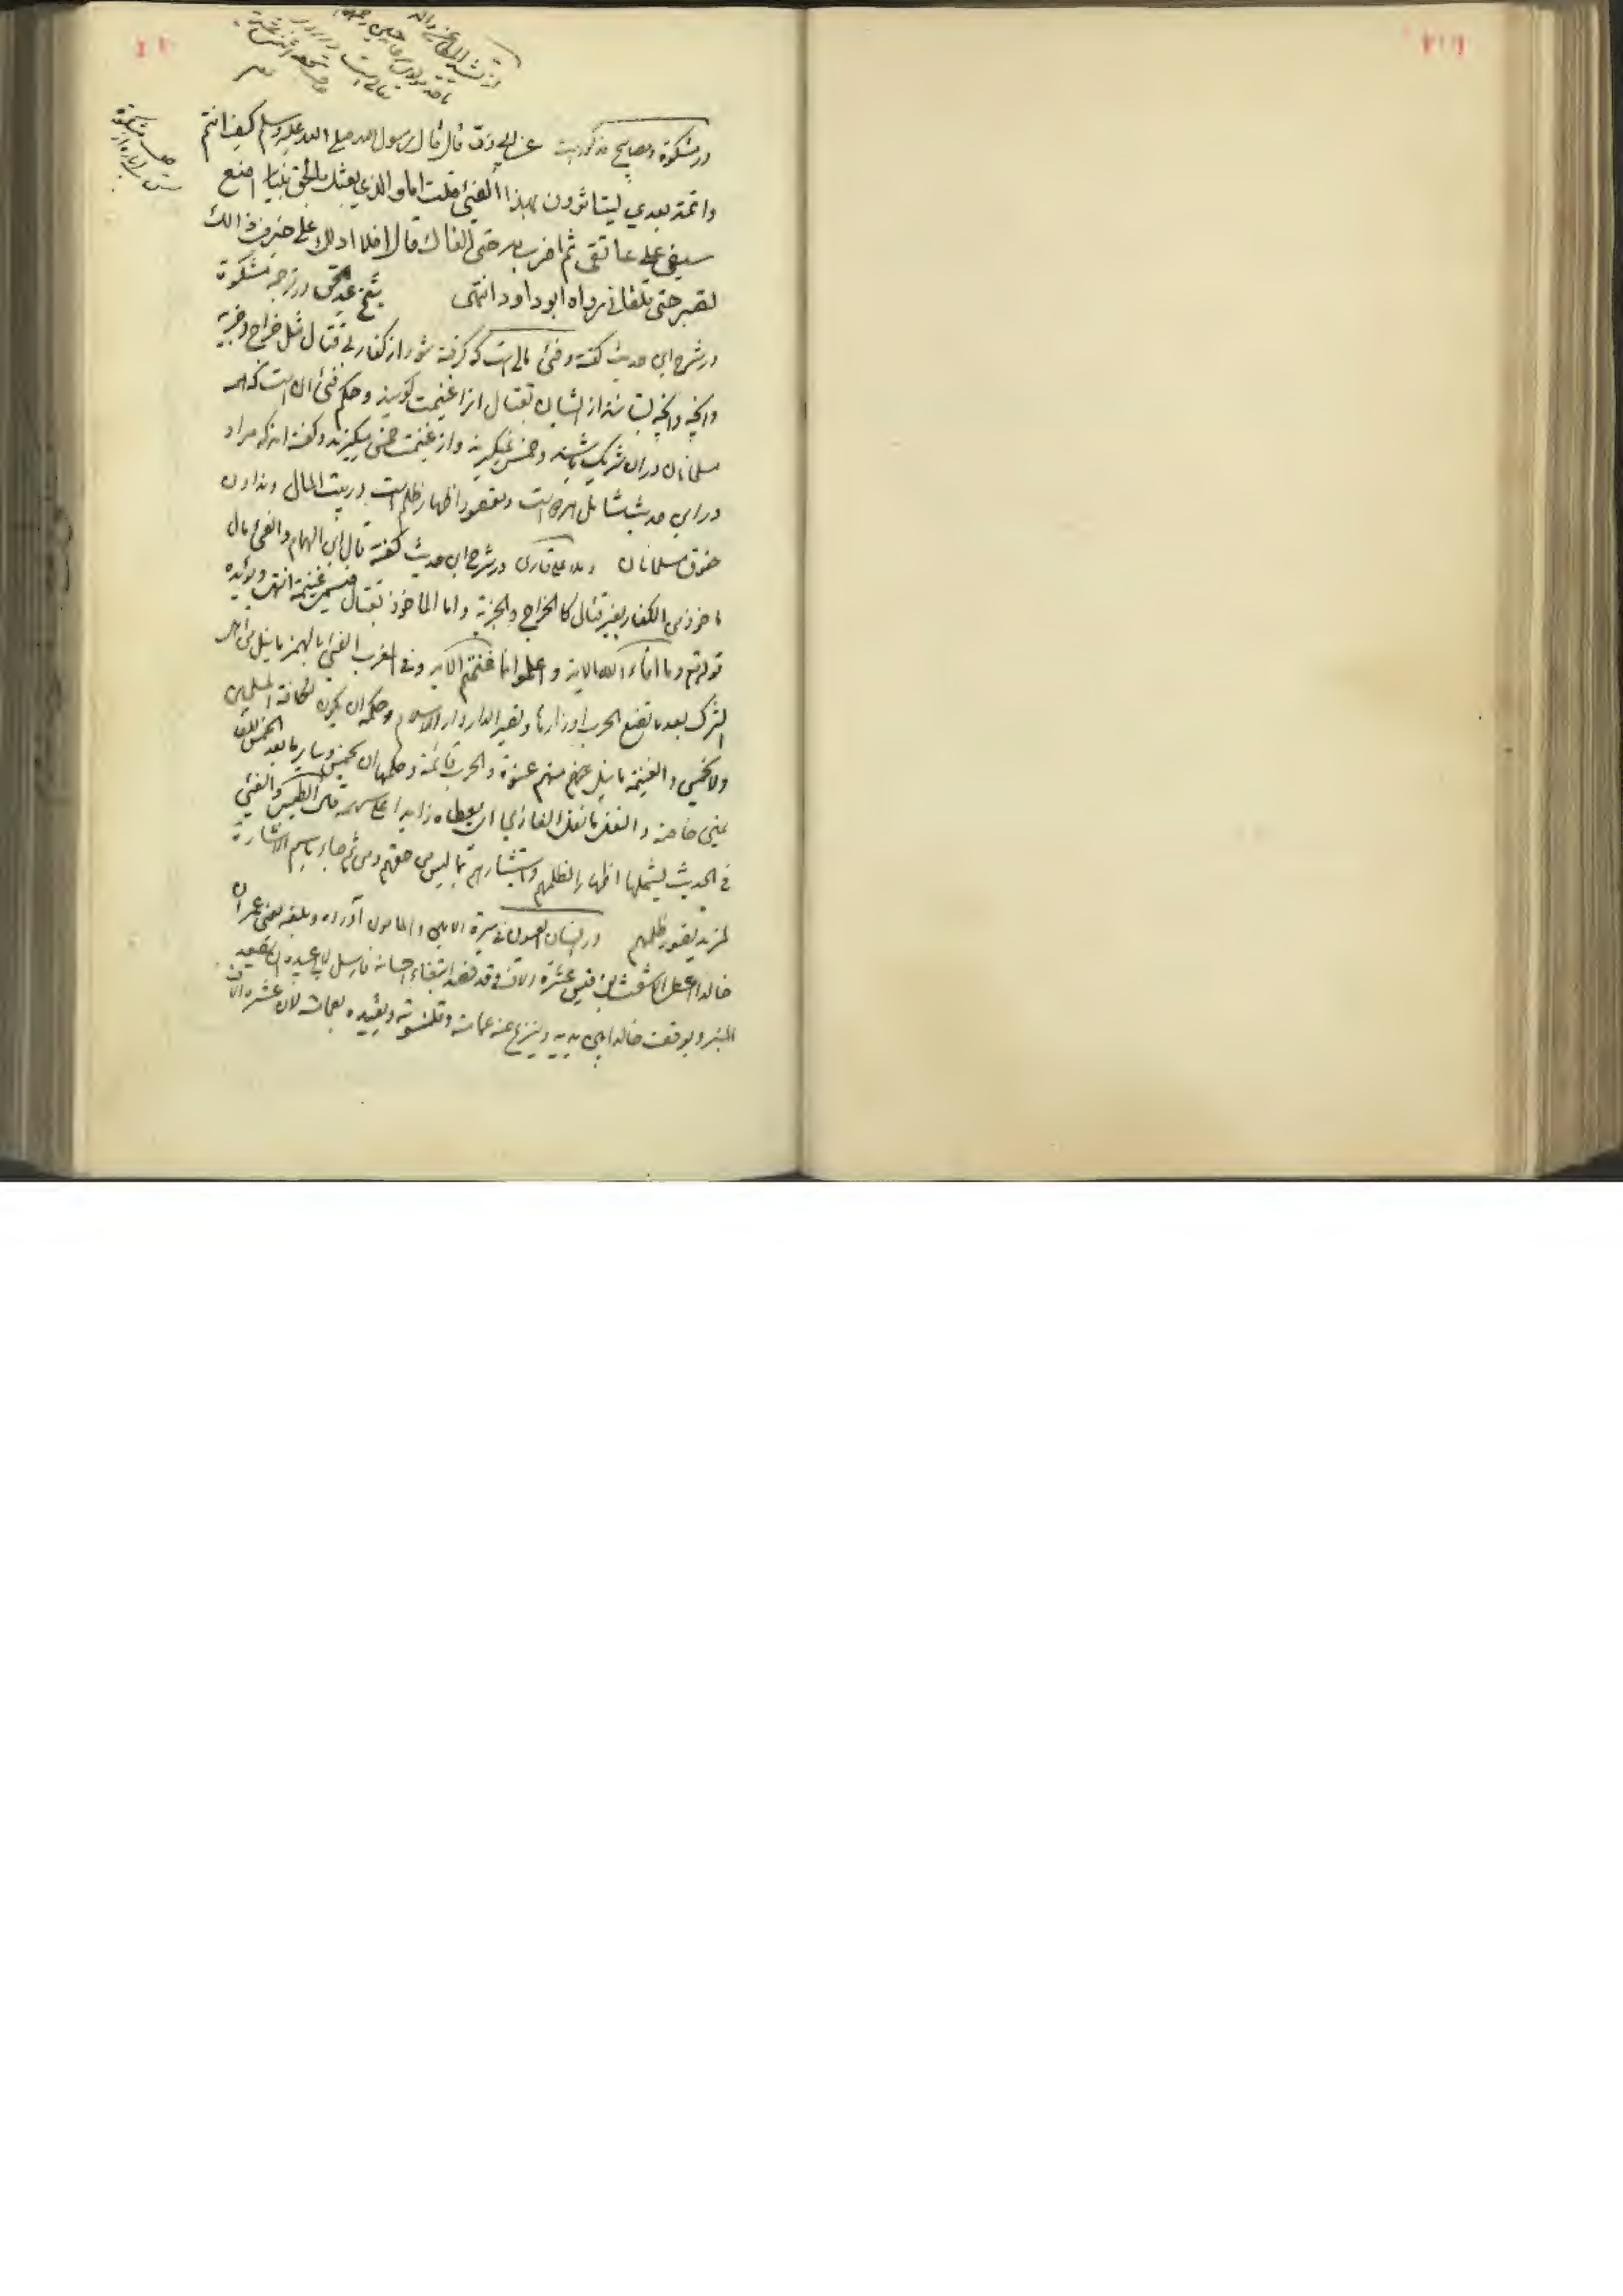 در مشکوة و مصابیح مذکور است عن ابی ذر قال قال رسول الله صلی الله علیه وسلم کیف انتم
وائمة بعدي یستاثرون بهذا الفیٔ قلت اما والذي بعثک بالحق نبیا اضع
سیفی علی عاتقی ثم اضرب به حتی القاک قال افلا ادلک علی خیر من ذالک
تصبر حتی تلقانی رواه ابو داود انتهی شیخ عبد الحق در ترجمه مشکوة
در شرح این حدیث گفته و فئ مالی است که گرفته شود از کفار بی قتال مثل خراج و جزیه
وانچه بستانند از ایشان بقتال انرا غنیمت گویند و حکم فئ آن است که همه
مسلمانان دران شریک باشند و خمس نمیگیرند و از غنیمت خمس میگیرند و گفته اند که مراد
در این حدیث شامل هر دو است و مقصود اظهار ظلم است در بیت المال و ندادن
حقوق مسلمانان و ملا علی قاری در شرح این حدیث گفته قال ابن الهمام والفئ مال
ماخوذ من الکفار بغیر قتال کالخراج والجزیة واما الماخوذ بقتال فیسمی غنیمة انتهی ویؤیده
قوله تع وما افاء الله الایة واعلموا انما غنمتم الایه وفی المغرب الفئ بالهمز ما نیل من اهل
الشرک بعد ما تضع الحرب اوزارها وتصیر الدار دار الاسلام وحکمه ان یکون لکافة المسلمین
ولا یخمس والغنیمة ما نیل منهم عنوة والحرب قائمة وحکمها ان یخمس وسایرها بعد الخمس للغا
نمین خاصة والنفل ما نفل الغازی ای یعطاه زایدا علی سهمه قال الطیبی والفئ
فی الحدیث یشملهما اظهارا لظلمهم واستیثارهم بما لیس من حقهم ومن ثم جاء باسم الاشارة
لمزید تصویر ظلمهم ودر انسان العیون فی سیرة الامین والمامون آورده وبلغه یعنی عمر ان
خالدا اعطی الاشعث بن قیس عشرة الاف وقد قصده ابتغاء احسانه فارسل لابی عبیدة ان یصعد
المنبر ویوقف خالدا بین یدیه وینزع عنه عمامته وقلنسوته ویقیده بعمامته لان عشرة الاف